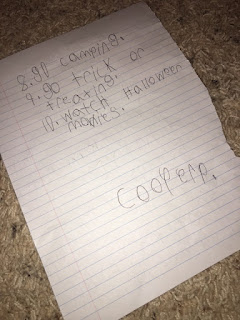 8. go camping.
9. go trick or
treating.
10. watch Halloween
movies.
Cooper p.